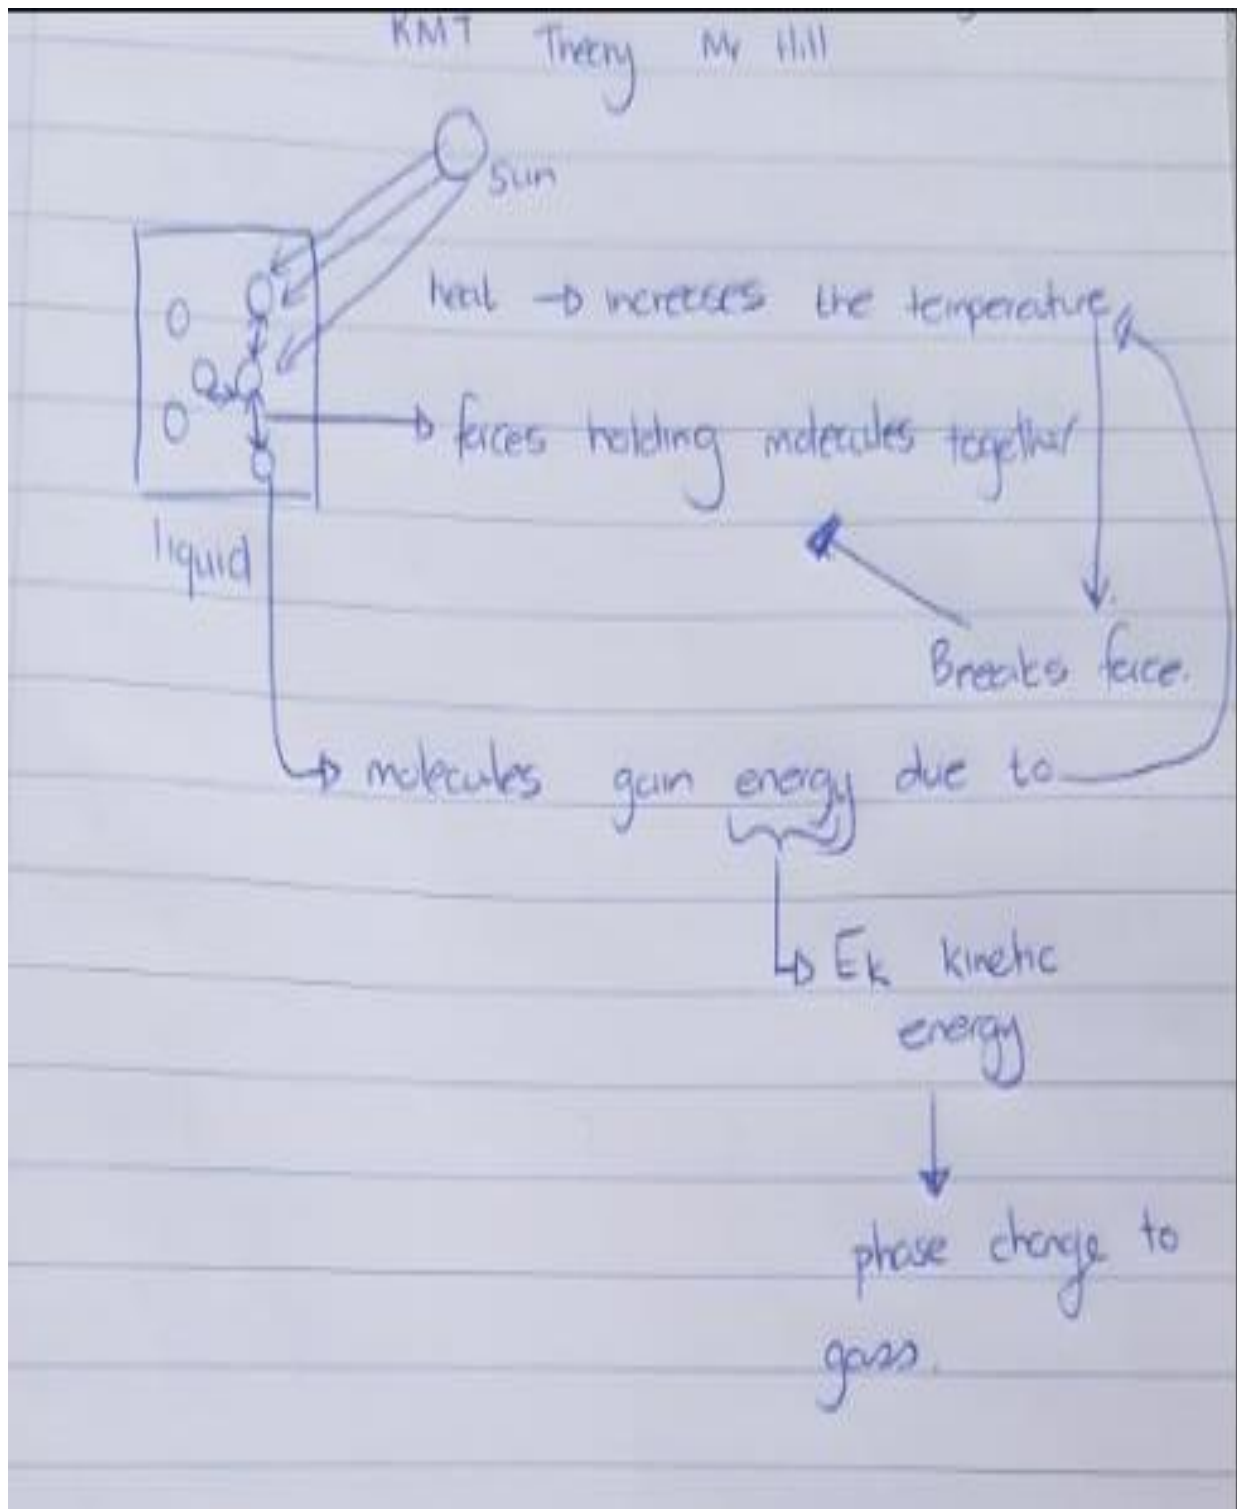 KMT Theory Mr Hill
Sun
heat → increases the temperature
→ forces holding molecules together
liquid
Breaks force.
→ molecules gain energy due to
→ Ek kinetic
energy
phase change to
gass.